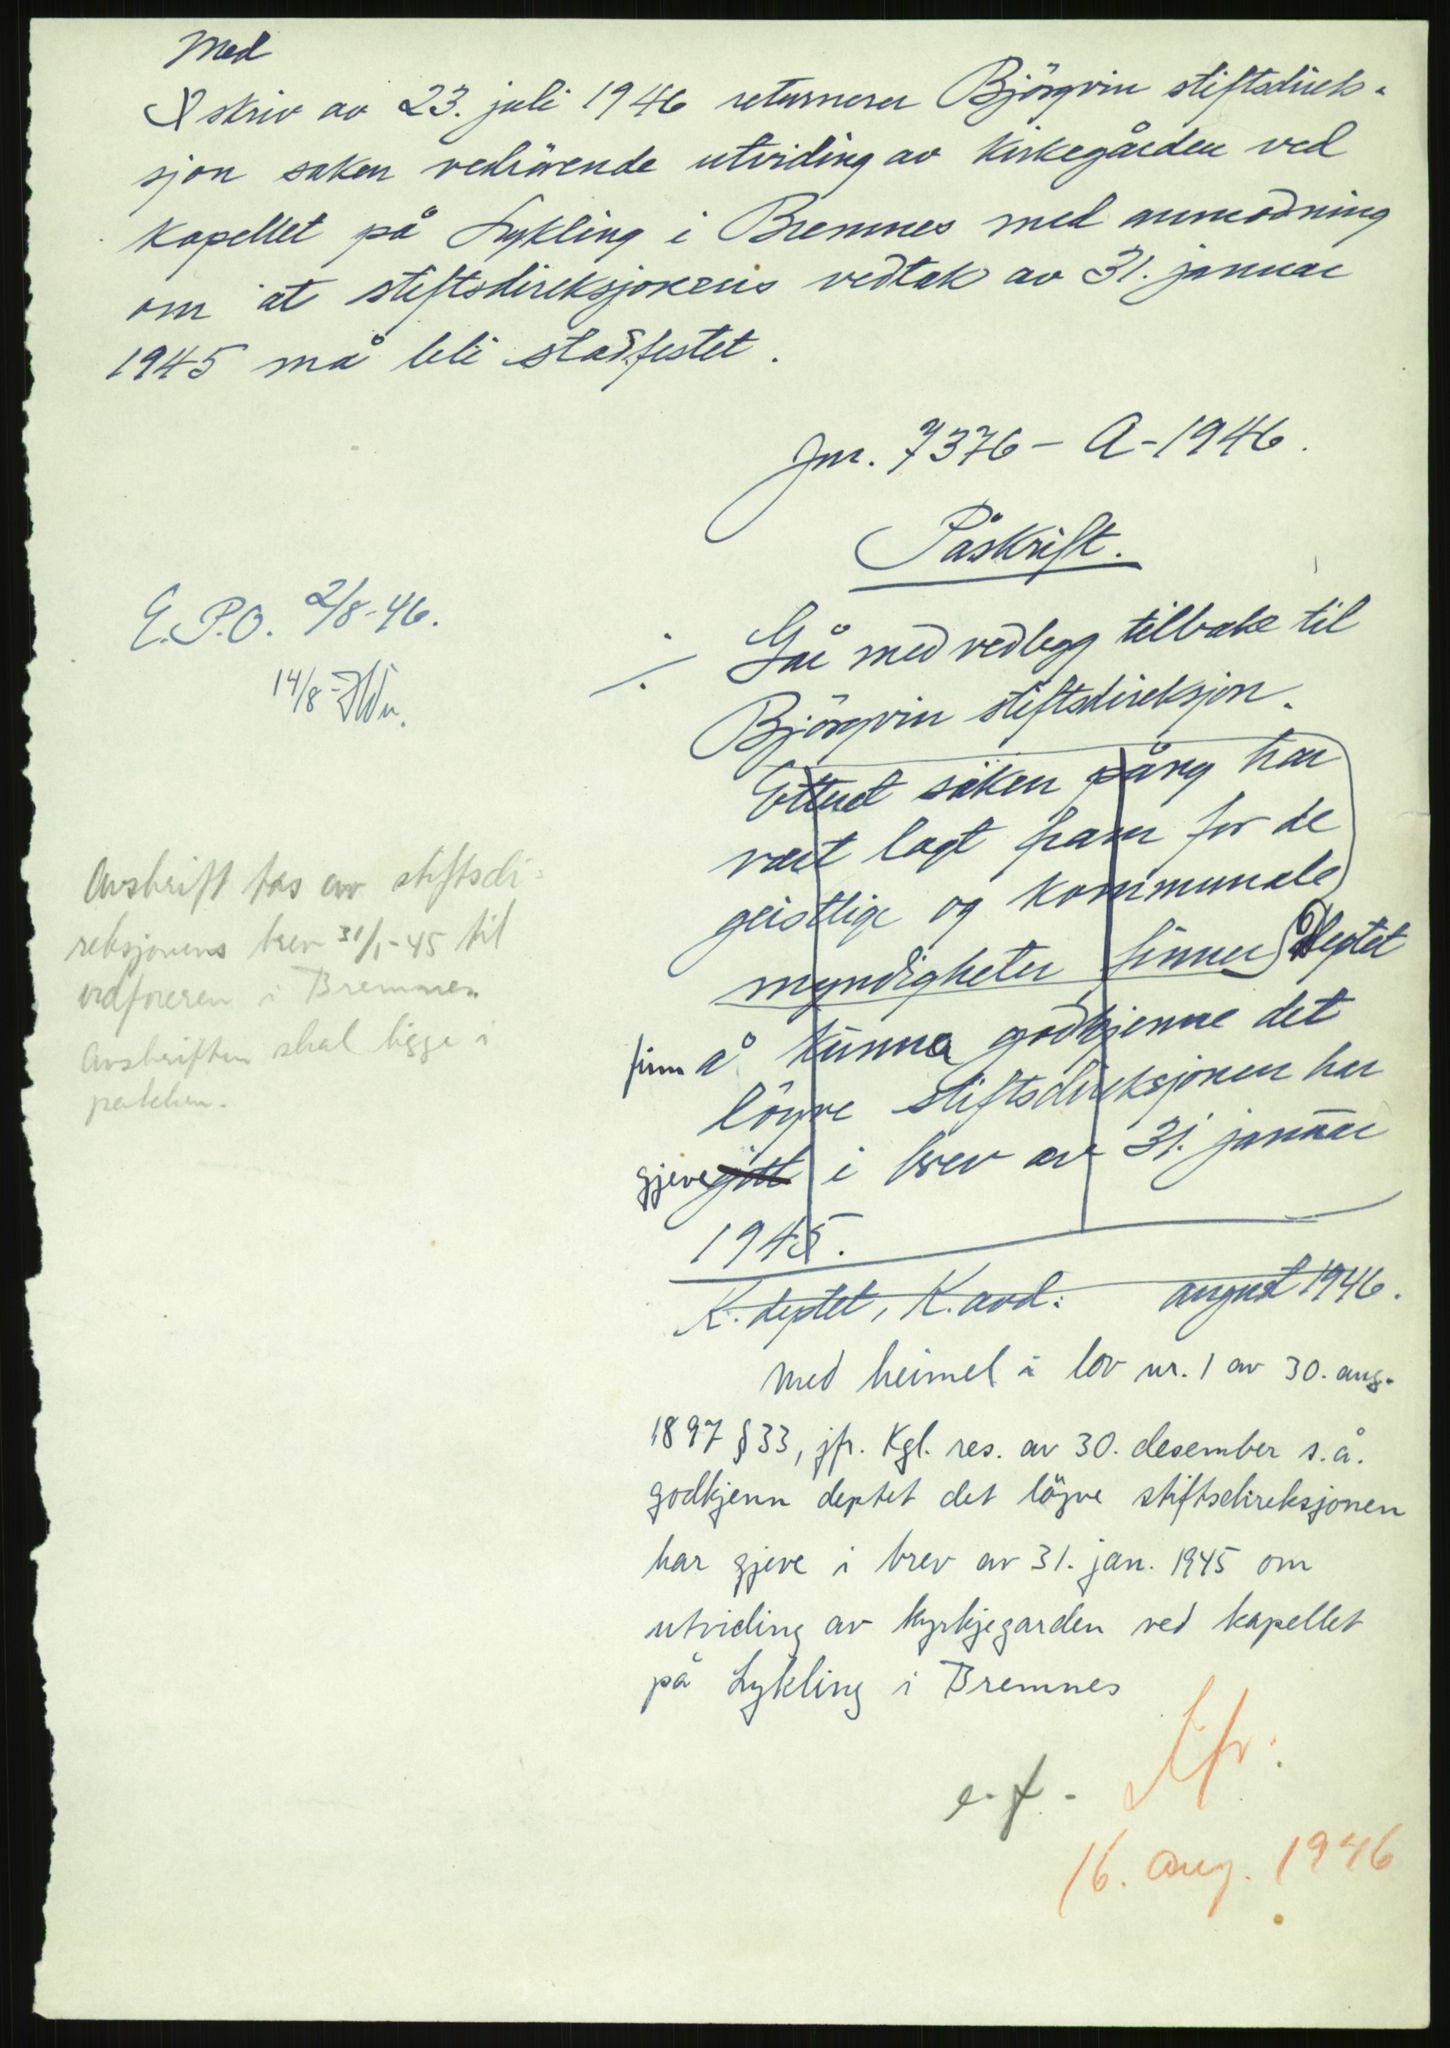 Med
I skriv av 23. juli 1946 returnerer Björgvin stiftsdirek-
sjon saken vedrörende utviding av kirkegården ved
kapellet på Lykling i Bremnes med anmodning
om at stiftsdireksjonens vedtak av 31. januar
1945 må bli stadfestet.
Jnr. 7376 - A - 1946.
Påskrift.
E.P.O. 2/8-46.
14/8
Går med vedlegg tilbake til
Björgvin stiftsdireksjon.
Etter at saken på ny har
vært lagt fram for de
geistlige og kommunale
myndigheter finner Deptet
finn å kunna godkjenne det
löyve stiftsdireksjonen har
gjeve gitt i brev av 31. januar
1945.
K. deptet, K. avd. august 1946.
Avskrift tas av stiftsdi-
reksjonens brev 31/1-45 til
ordføreren i Bremnes
Avskriften skal ligge i
pakken.
Med heimel i lov nr. 1 av 30. aug.
1897 § 33, jfr. Kgl. res. av 30. desember s.å.
godkjenn deptet det löyve stiftsdireksjonen
har gjeve i brev av 31. jan. 1945 om
utviding av kyrkjegarden ved kapellet
på Lykling i Bremnes
e.f.
16. aug. 1946